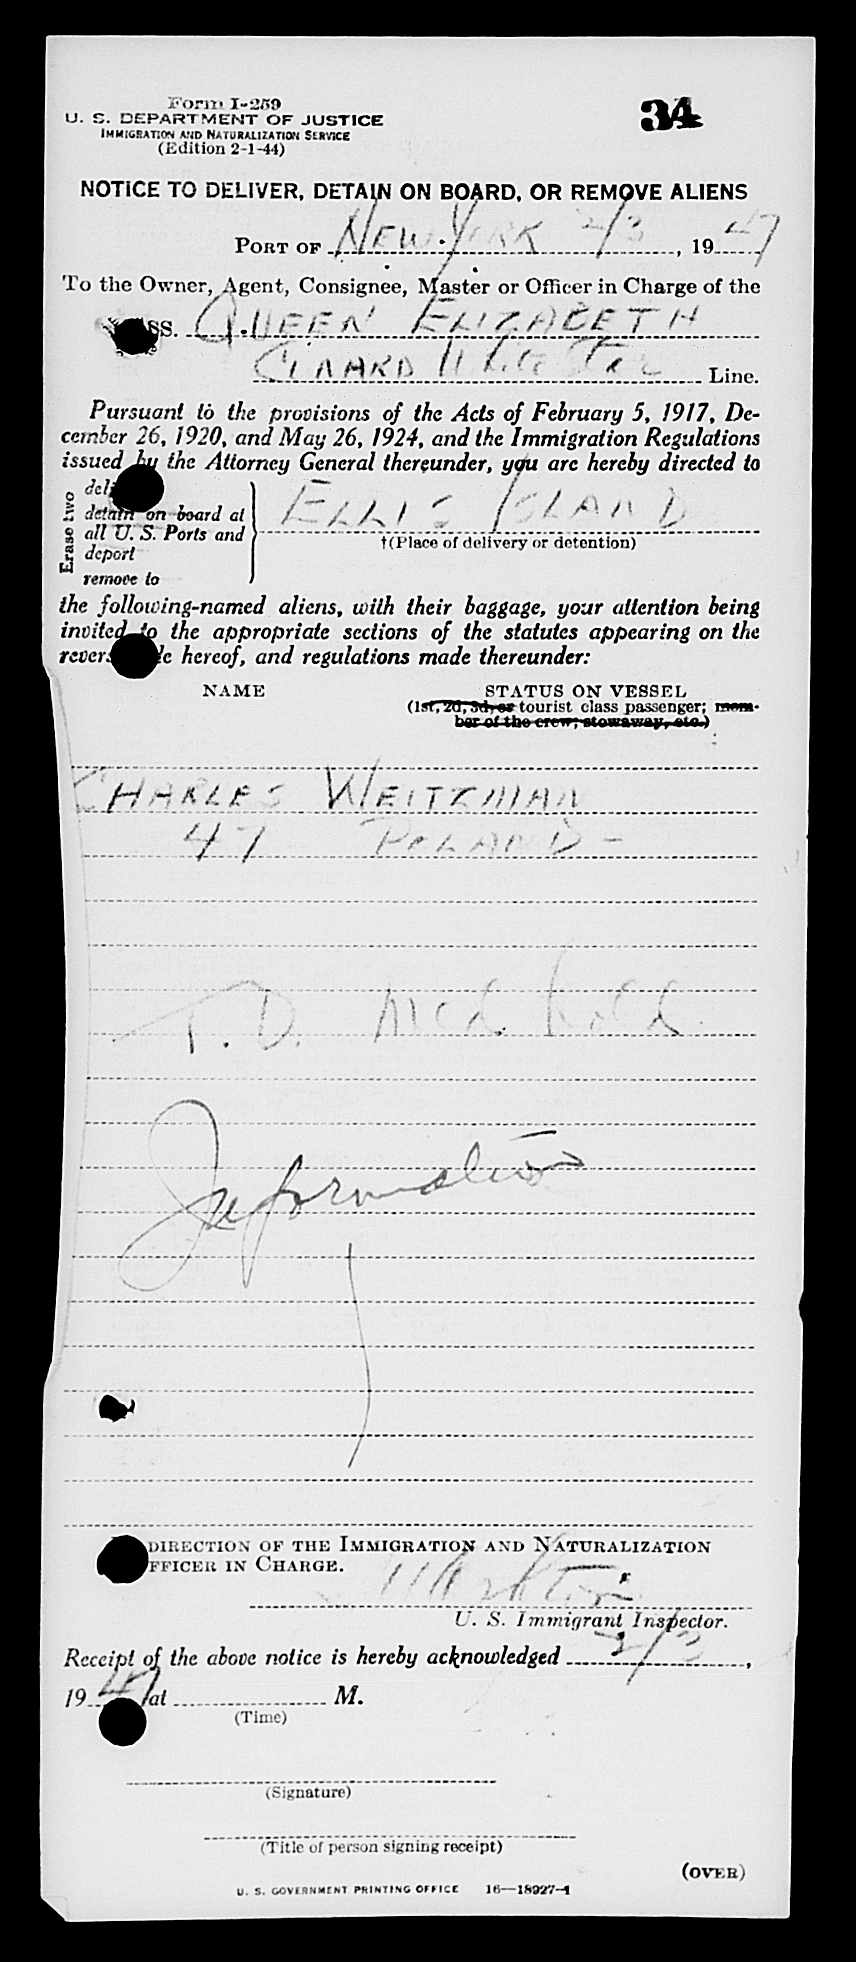 Form I-259
34
U. S. DEPARTMENT OF JUSTICE
IMMIGRATION AND NATURALIZATION SERVICE
(Edition 2-1-44)
NOTICE TO DELIVER, DETAIN ON BOARD, OR REMOVE ALIENS
PORT OF NEW YORK 2/3, 1947
To the Owner, Agent, Consignee, Master or Officer in Charge of the
SS. QUEEN ELIZABETH
CUNARD White Star Line.
Pursuant to the provisions of the Acts of February 5, 1917, De-
cember 26, 1920, and May 26, 1924, and the Immigration Regulations
issued by the Attorney General thereunder, you are hereby directed to
Erase two
detain on board at
all U. S. Ports and
deport
remove to
ELLIS ISLAND
†(Place of delivery or detention)
the following-named aliens, with their baggage, your attention being
invited to the appropriate sections of the statutes appearing on the
hereof, and regulations made thereunder:
NAME STATUS ON VESSEL
(1st, 2d, 3d, or tourist class passenger; mem-
ber of the crew; stowaway, etc.)
CHARLES WEITZMAN
47 POLAND -
T. D. Med hold
Information
DIRECTION OF THE IMMIGRATION AND NATURALIZATION
OFFICER IN CHARGE.
U. S. Immigrant Inspector.
Receipt of the above notice is hereby acknowledged 2/3,
1947 at M.
(Time)
(Signature)
(Title of person signing receipt)
(OVER)
U. S. GOVERNMENT PRINTING OFFICE 16—18927-1